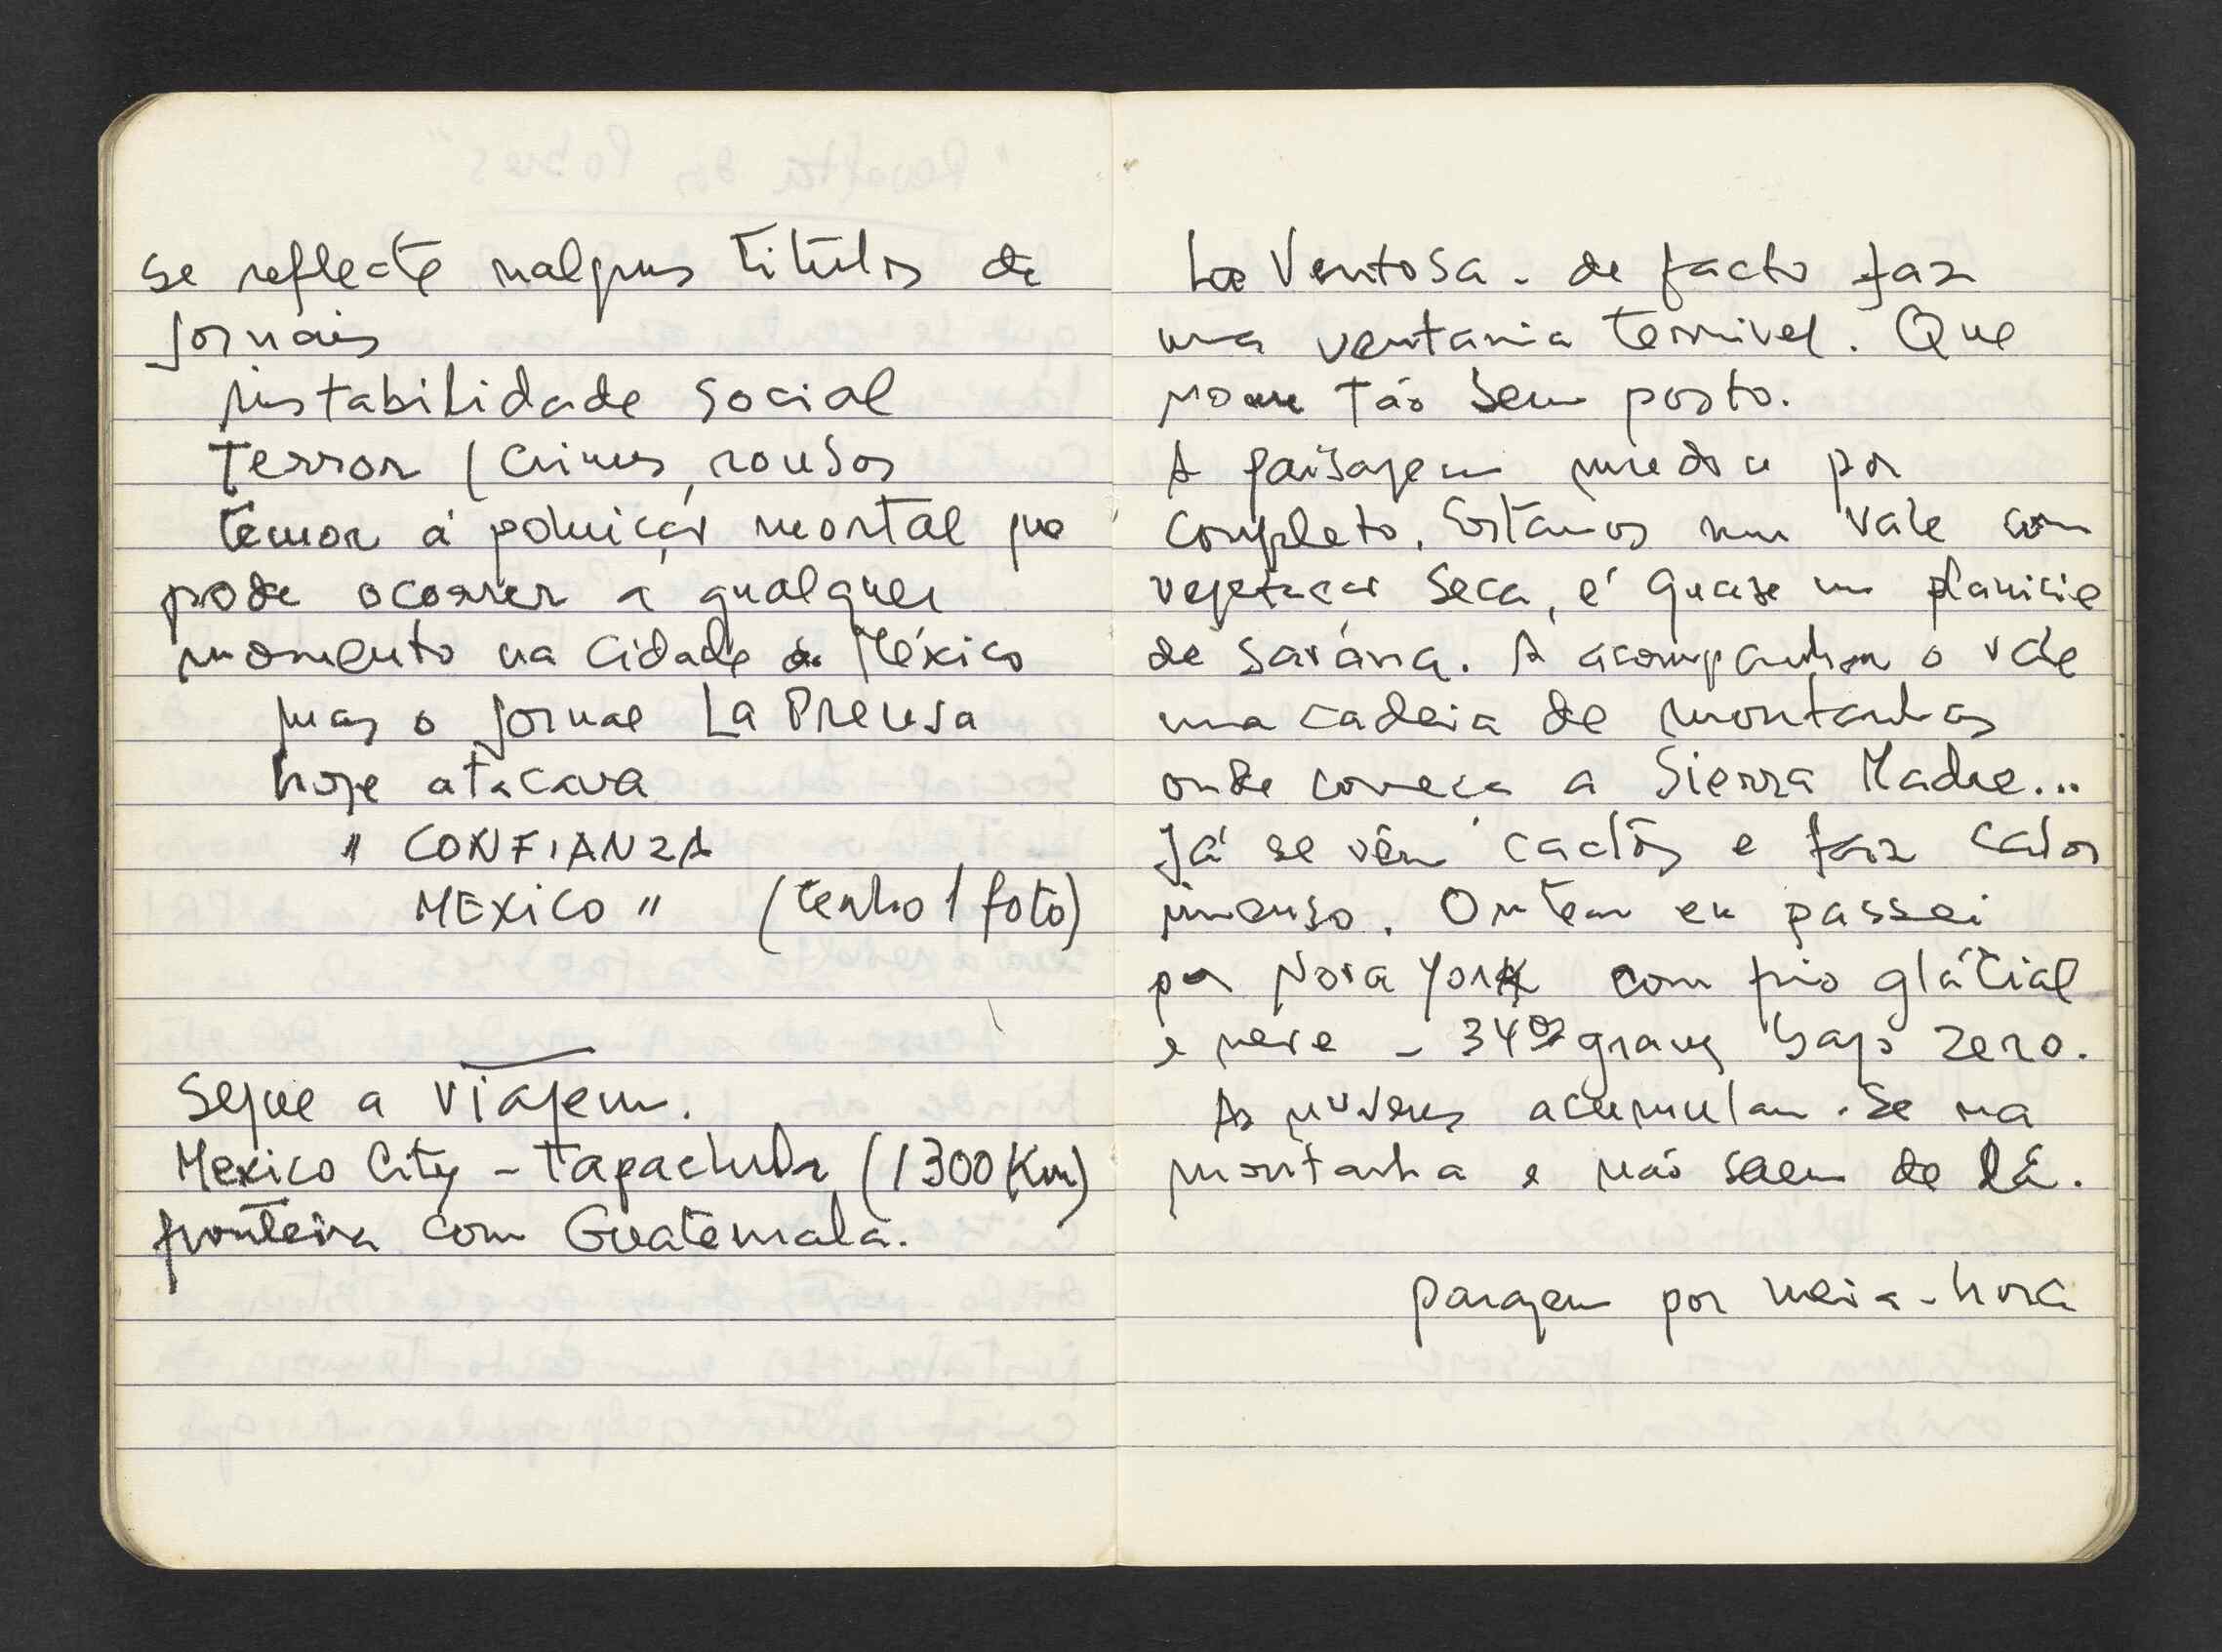 se reflecte nalguns titulos de
jornais
instabilidade social
terror / crimes, roubos
temor á poluição mortal que
pode ocorrer a qualquer
momento na cidade do México
mas o jornal La Prensa
hoje atacava
" CONFIANZA
MEXICO " (tenho 1 foto)
Segue a viagem.
Mexico City - Tapachula (1300 Km)
fronteira com Guatemala.
La Ventosa - de facto faz
uma ventania terrivel. Que
nome tão bem posto.
A paisagem mudou por
completo. Estamos num vale com
vegetação seca, é quase um planicie
de savána. A acompanhar o vale
uma cadeia de montanhas
onde começa a Sierra Madre...
Já se vêm cactos e faz calor
imenso. Ontem eu passei
por Nova York com frio glácial
e neve - 34 graus bajo zero.
As nuvens acumulam-se na
montanha e não saem de lá.
paragem por meia-hora